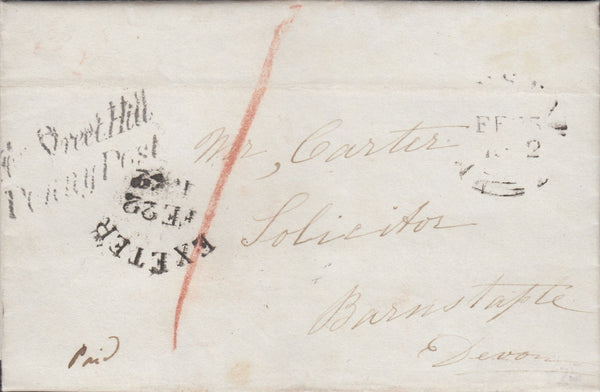 Street Hill
Penny Post
EXETER
FE 22
1842
FE
2
1
Mr, Carter
Solicitor
Barnstaple
Devon
Paid